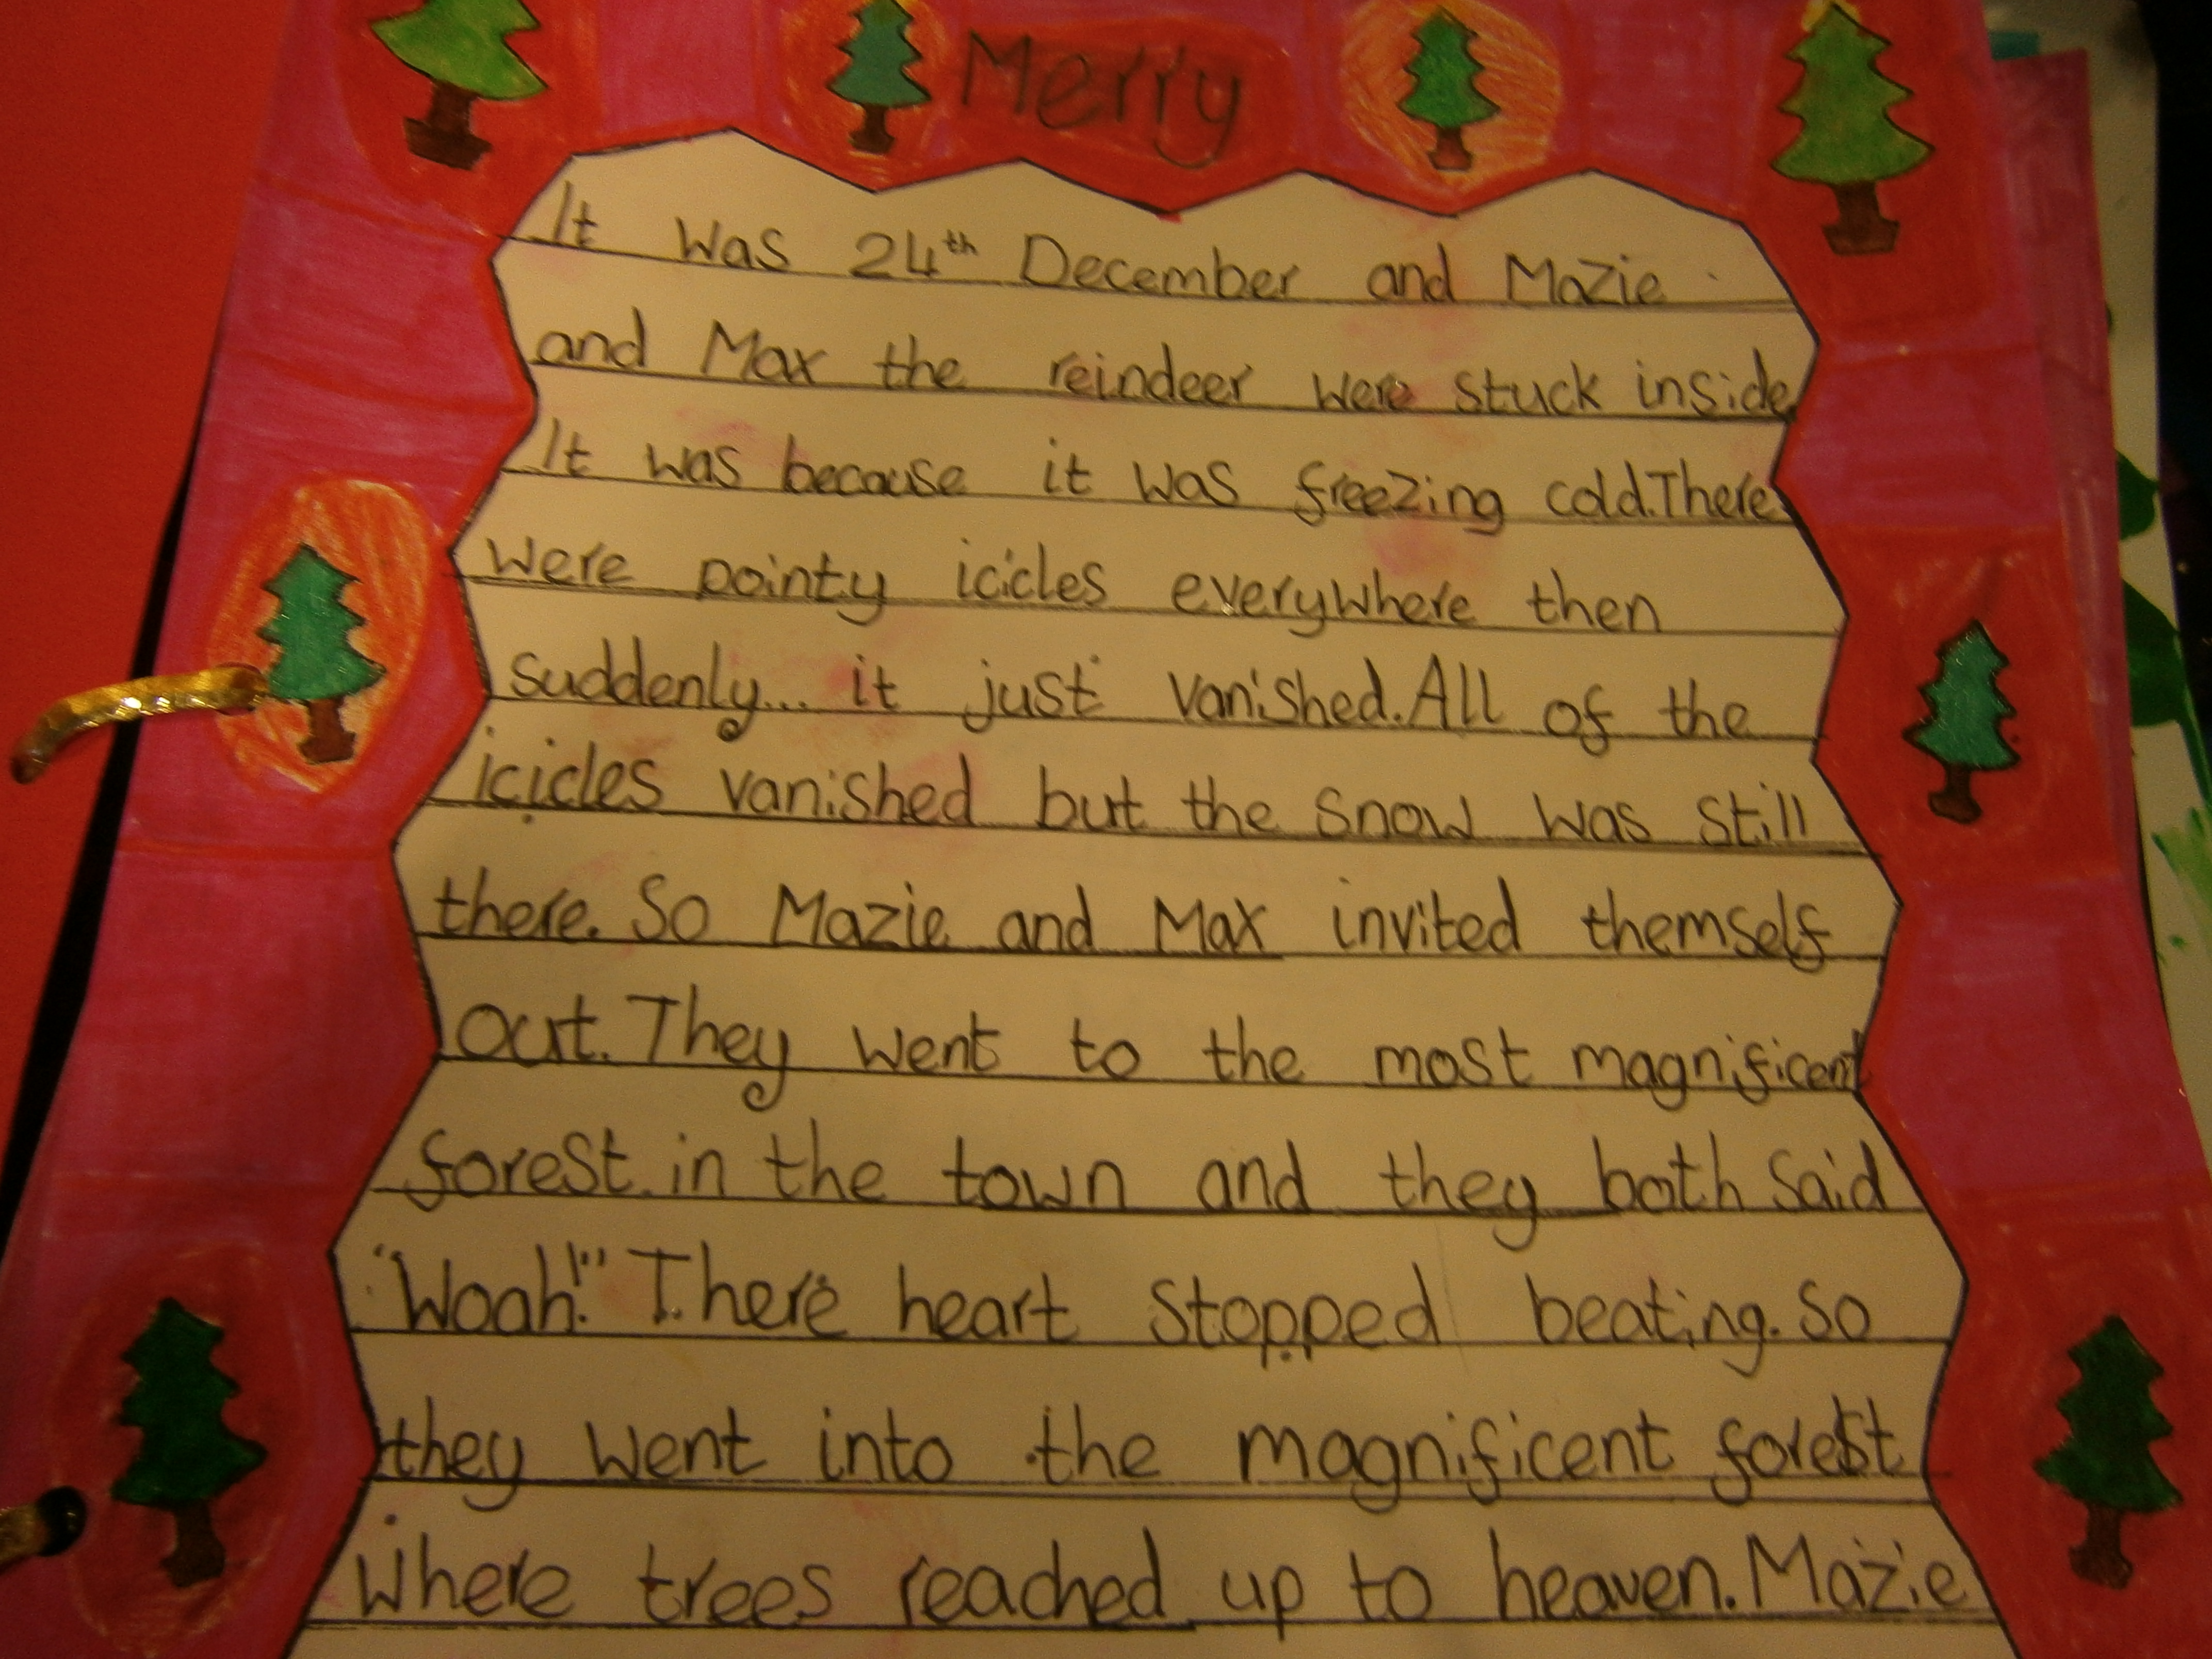 Merry
It was 24th December and Mazie
and Max the reindeer were stuck inside
It was because it was freezing cold.There
were pointy icicles everywhere then
suddenly... it just vanished.All of the
icicles vanished but the snow was still
there. So Mazie and Max invited themself
out. They went to the most magnificent
forest in the town and they both said
"Woah!" There heart stopped beating. So
they went into the magnificent forest
where trees reached up to heaven. Mazie